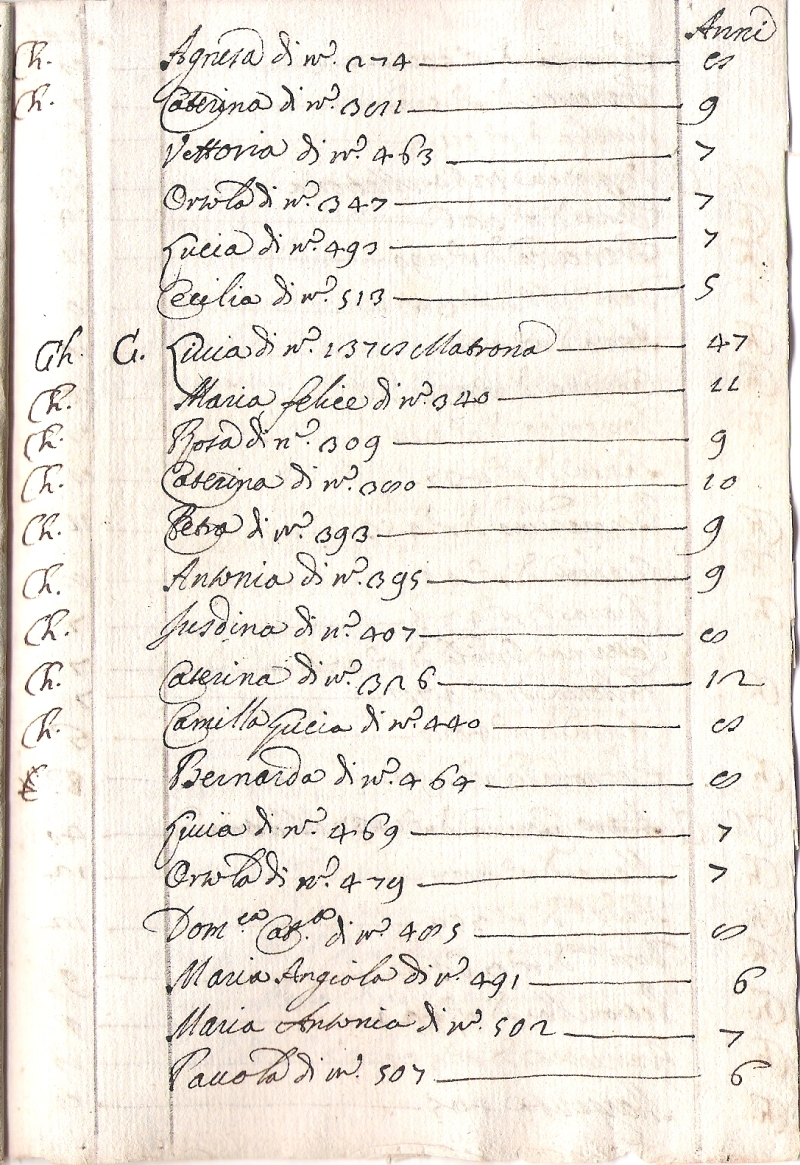 Anni
Ch. Agnesa di n.º 274 8
Ch. Caterina di n.º 3811 9
Vettoria di n.º 463 7
Orsola di n.º 347 7
Lucia di n.º 493 7
Cecilia di n.º 513 5
Ch. C. Livia di n.º 1378 Matrona 47
Ch. Maria felice di n.º 340 11
Ch. Rosa di n.º 309 9
Ch. Caterina di n.º 380 10
Ch. Petra di n.º 393 9
Ch. Antonia di n.º 395 9
Ch. Jusdina di n.º 407 8
Ch. Caterina di n.º 326 12
Ch. Camilla Lucia di n.º 440 8
Bernarda di n.º 464 8
Livia di n.º 469 7
Orsola di n.º 479 7
Dom.ca Cat.a di n.º 485 8
Maria Angiola di n.º 491 6
Maria Antonia di n.º 502 7
Pavola di n.º 507 6